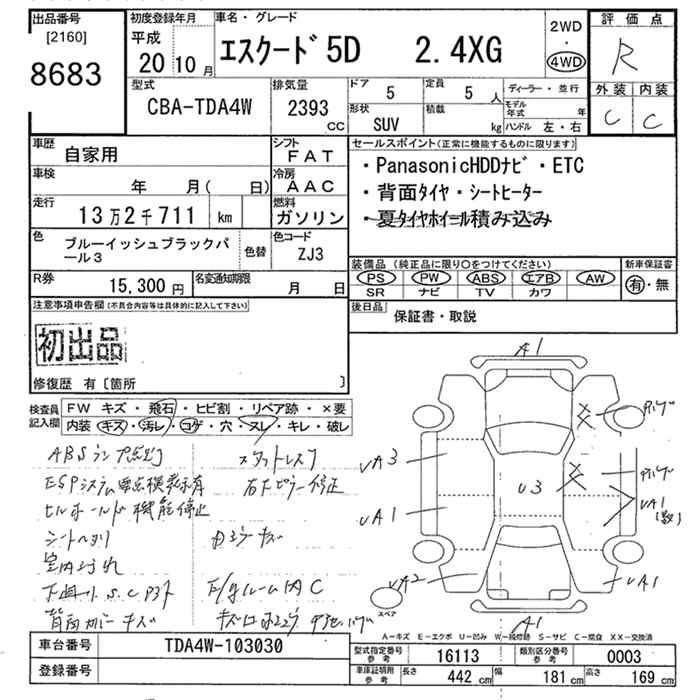 出品番号
[2160]
8683
初度登録年月
平成
20 10 月
車名・グレード
エスクード5D 2.4XG
2WD
・
4WD
評価点
R
外装 内装
C C
型式
CBA-TDA4W
排気量
2393
CC
ドア
5
定員
5 人
形状
SUV
積載
kg
ディーラー・並行
モデル年式 年
ハンドル 左・右
車歴
自家用
シフト
FAT
車検
年 月( 日)
冷房
AAC
走行
13万2千711 km
燃料
ガソリン
色
ブルーイッシュブラックパール3
色替
色コード
ZJ3
R券
15,300 円
名変通知期限
月 日
セールスポイント(正常に機能するものに限ります)
・PanasonicHDDナビ・ETC
・背面タイヤ・シートヒーター
・夏タイヤホイール積み込み
装備品(純正品に限り○をつけてください)
PS PW ABS エアB AW
SR ナビ TV カワ
新車保証書
有・無
後日品
保証書・取説
注意事項申告欄(不具合内容等は具体的に記入して下さい)
初出品
修復歴 有〔箇所 〕
検査員記入欄
FW キズ・飛石・ヒビ割・リペア跡・×要
内装 キズ・汚レ・コゲ・穴・スレ・キレ・破レ
ABSランプ点灯
スタットレス
ESPシステム要点検表示有
ヒルホールド機能停止
シートヘタリ
室内汚れ
キズ
A1
UA3
UA1
UA2
U3
UA1
UA1
A1
スペア
A-キズ E-エクボ U-凹み W-補修跡 S-サビ C-腐食 XX-交換済
車台番号
TDA4W-103030
登録番号
型式指定番号 参考
16113
類別区分番号 参考
0003
車庫証明用 参考
長さ 442 cm 幅 181 cm 高さ 169 cm